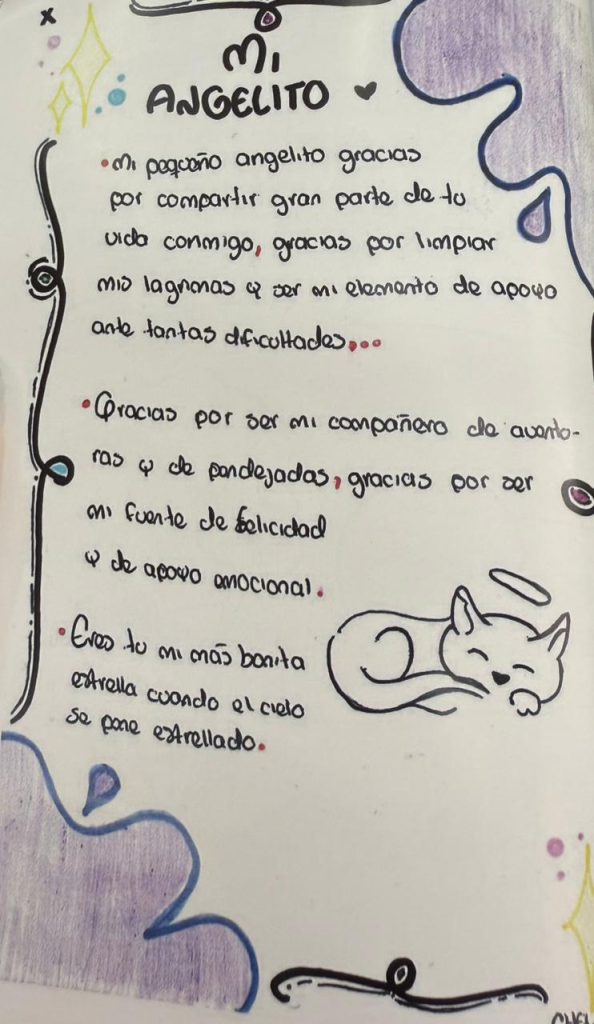 x
Mi
ANGELITO
• Mi pequeño angelito gracias
por compartir gran parte de tu
vida conmigo, gracias por limpiar
mis lagrimas y ser mi elemento de apoyo
ante tantas dificultades,...
• Gracias por ser mi compañero de aventu-
ras y de pendejadas, gracias por ser
mi fuente de felicidad
y de apoyo emocional.
• Eres tu mi más bonita
estrella cuando el cielo
se pone estrellado.